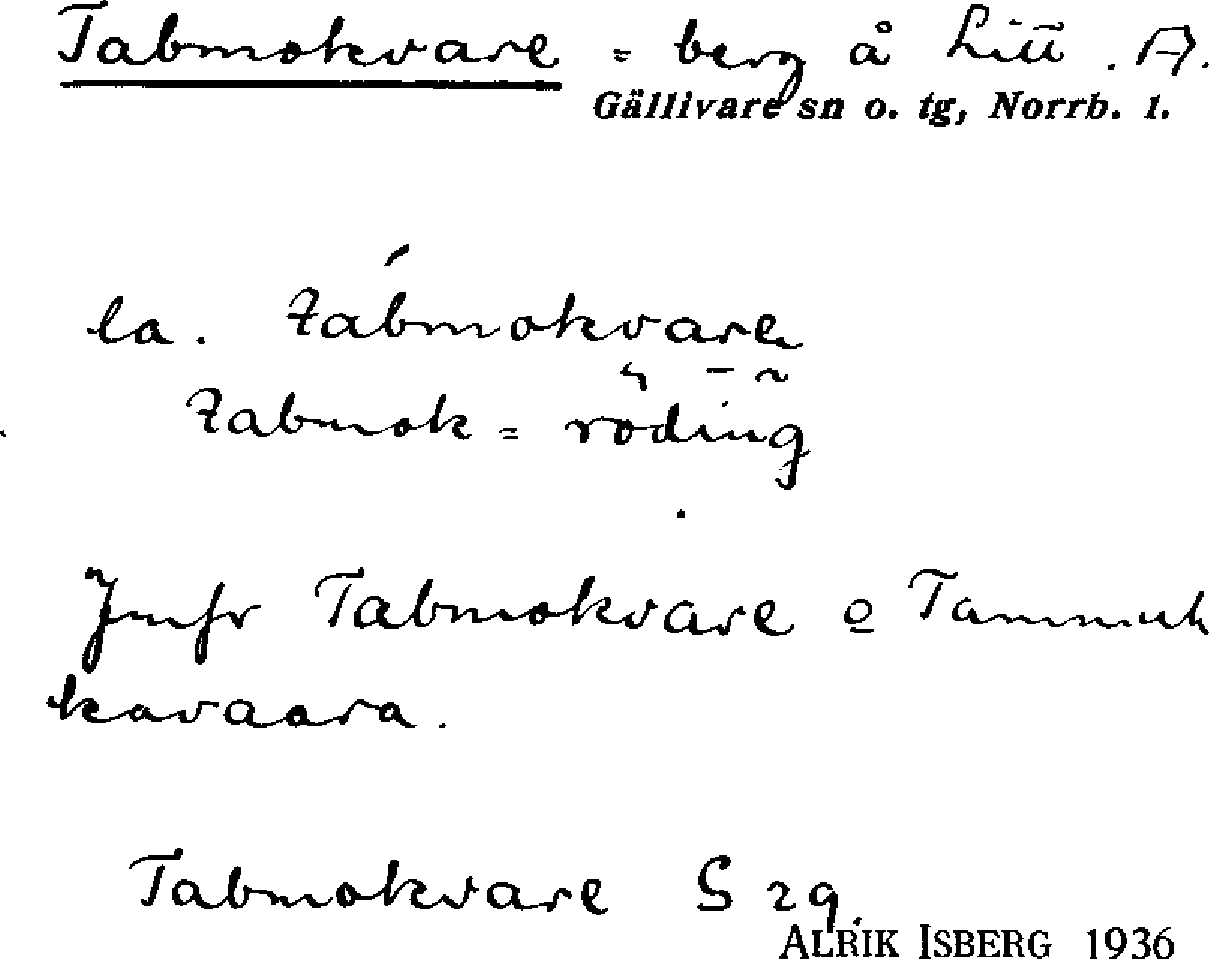 Tabmokvare = berg å Litt. A.
Gällivare sn o. tg, Norrb. 1.
la. tábmokvare
tabmok = röding
Jmfr Tabmokvare o Tammuk
kavaara.
Tabmokvare S 29.
ALRIK ISBERG 1936